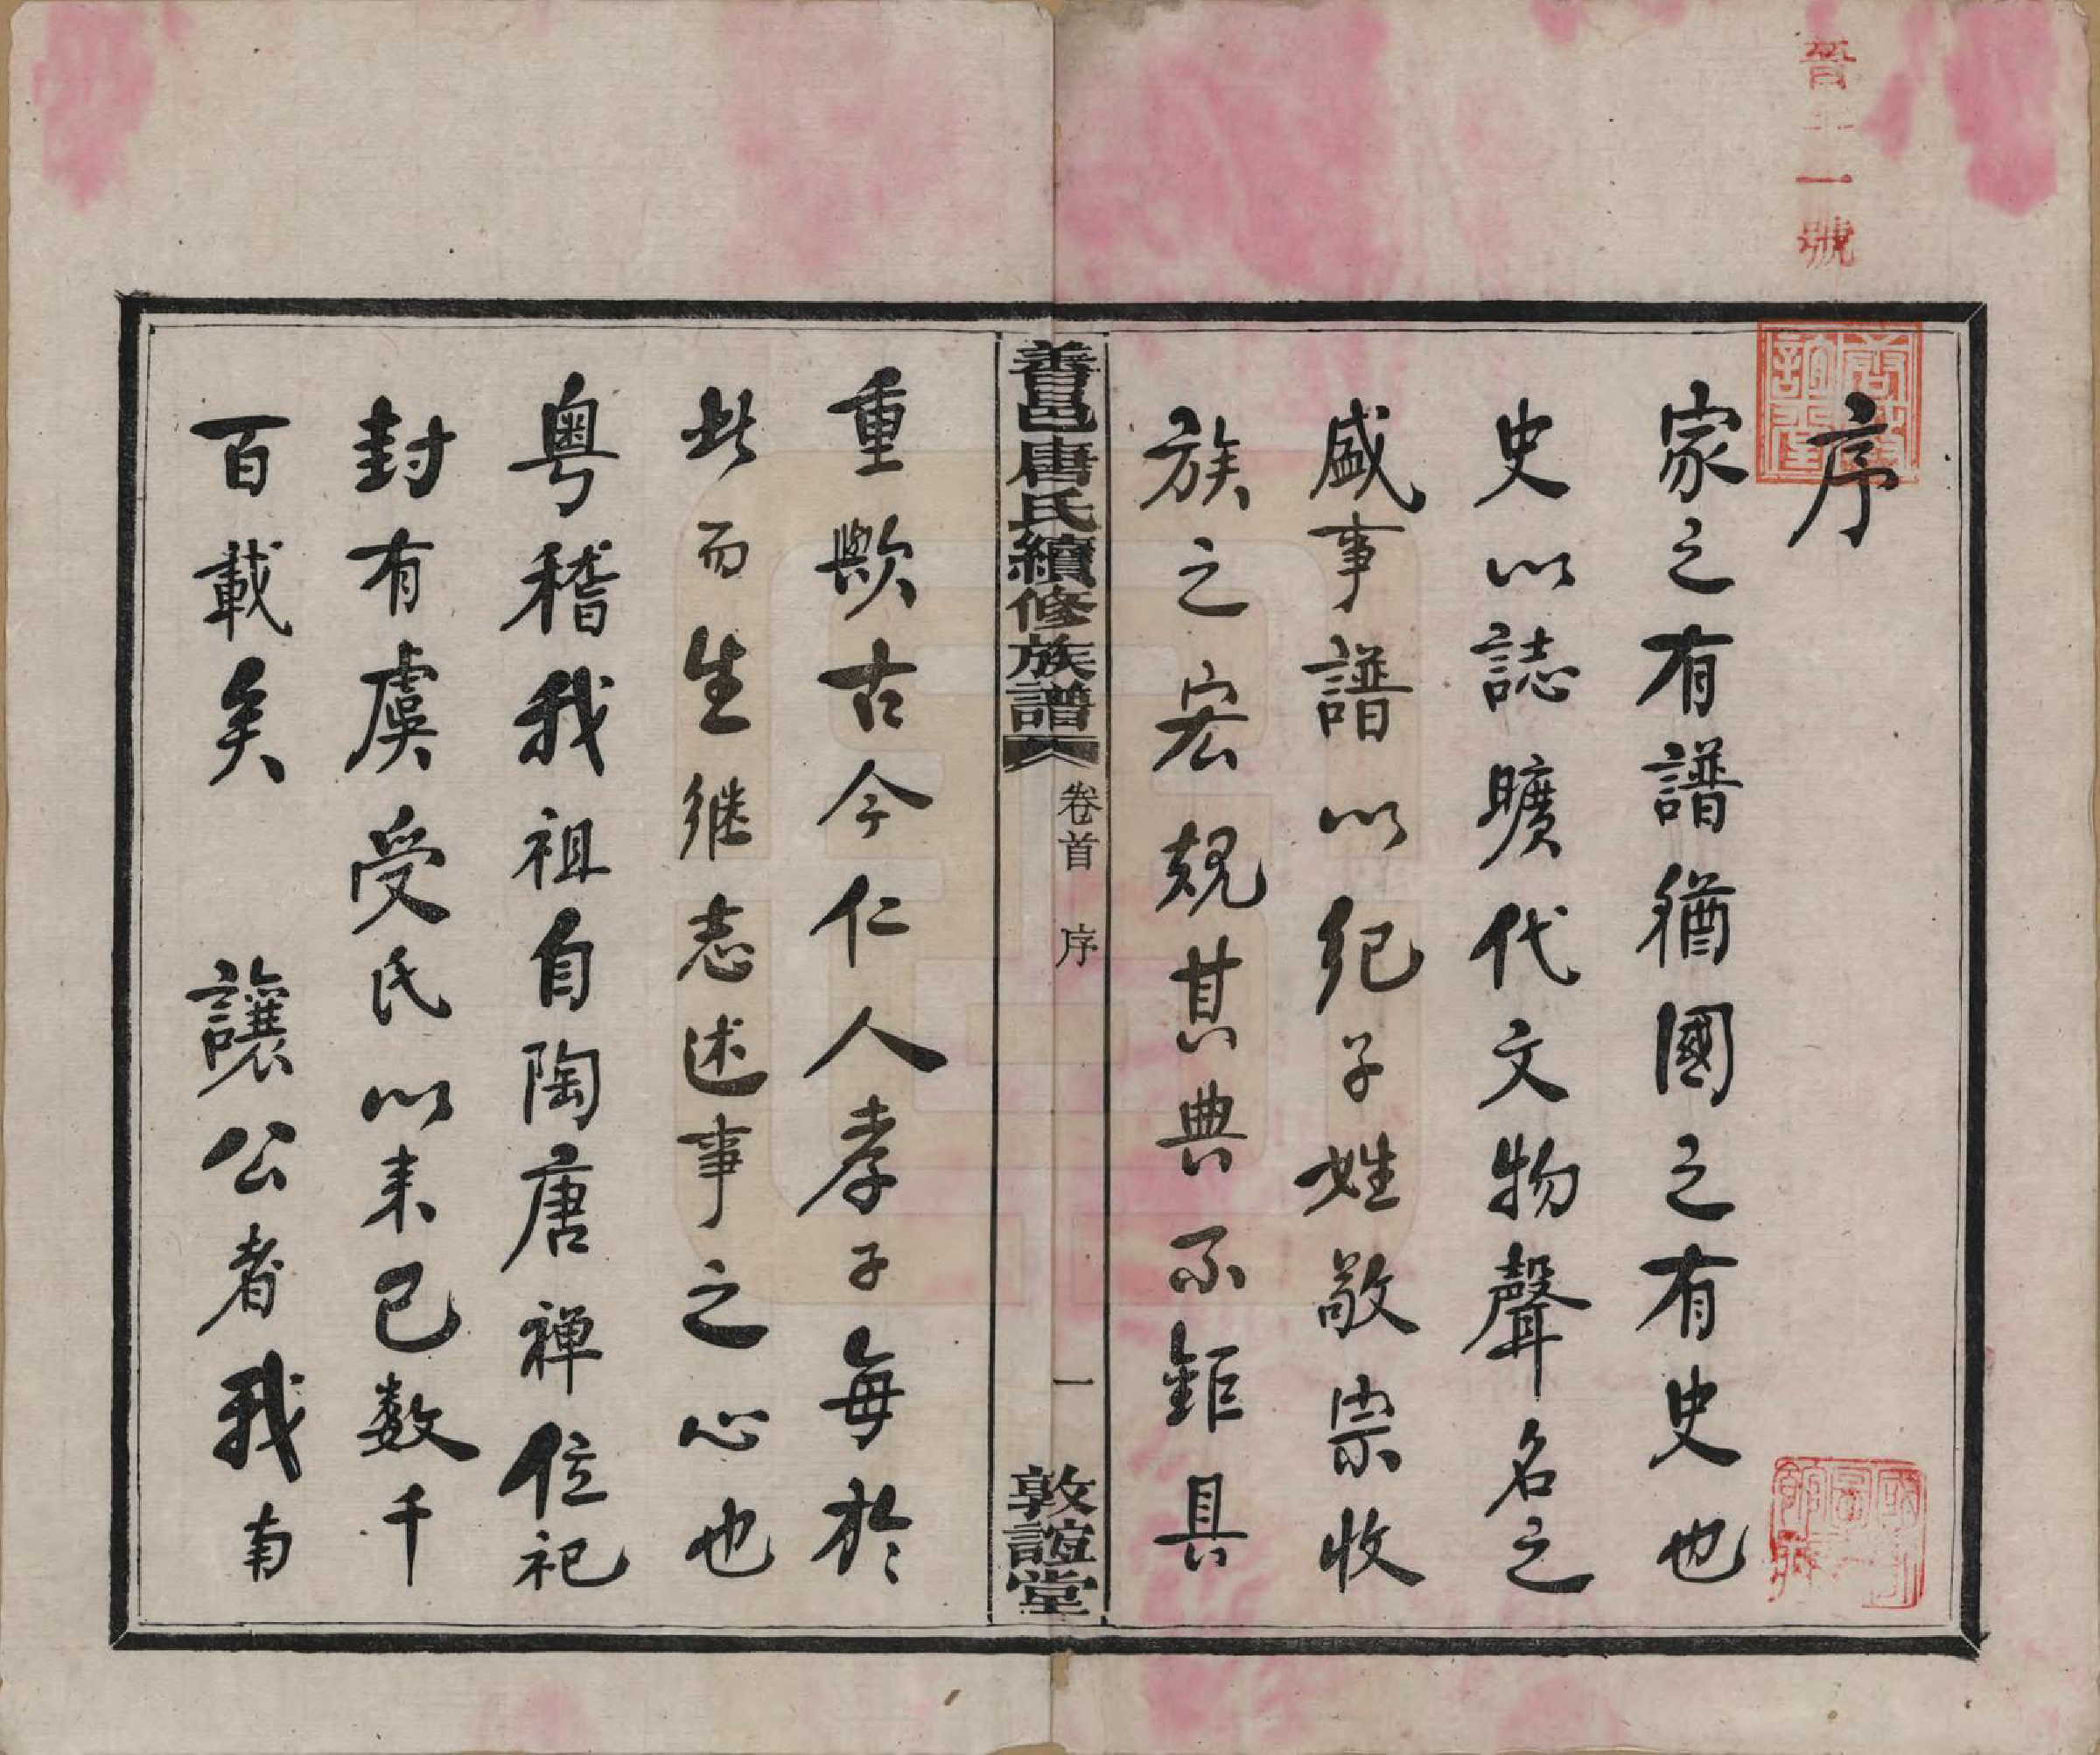 序
家之有譜猶國之有史也
史以誌曠代文物聲名之
盛事譜以紀子姓敬宗收
族之宏規其典不鉅具
重歟古今仁人孝子每於
此而生继志述事之心也
粤稽我祖自陶唐禅位祀
封有虞受氏以来已数千
百載矣　讓公者我南
善邑唐氏續修族譜
卷首　序
一
敦誼堂
一號
敦誼堂